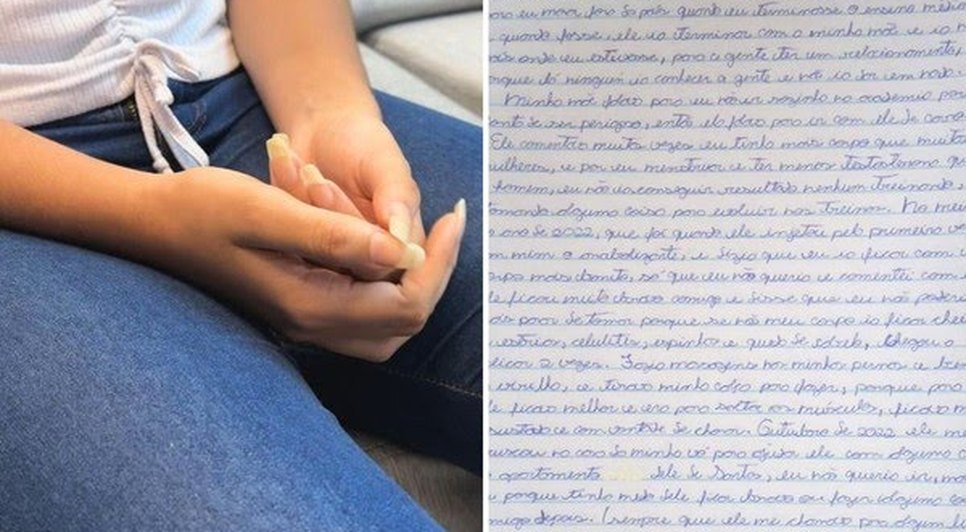 eu mora fora do país quando eu terminasse o ensino médio
quando fosse, ele ia terminar com a minha mãe e ia
onde eu estivesse, para a gente ter um relacionamento,
porque lá ninguém ia conhecer a gente e nós ia ser em nada.
Minha mãe falou para eu não ir sozinha na academia
se ser perigoso, então ela falou para ir com ele de
Ele comentou muitas vezes eu tinha mais corpo que muita
mulheres, e por eu menstruar e ter menos testosterona que
homem, eu não ia conseguir resultado nenhum treinando,
tomando alguma coisa para evoluir nos treinos. No meu
ano de 2022, que foi quando ele injetou pela primeira
em mim o anabolizante, e dizia que eu ia ficar com
mais bonito, só que eu não queria e comentei com
ele ficou muito bravo comigo e disse que eu não poderia
parar de tomar porque se não meu corpo ia ficar
estrias, celulites, espinhas e queda de cabelo, chegou a
aplicar 2 vezes. Fazia massagens nas minhas pernas e
e tirava minha calça para fazer, porque para
ele ficava melhor e era para soltar os músculos, ficava
assustada e com vontade de chorar. Outubro de 2022 ele me
buscou na casa da minha vó para ajudar ele com alguma
apartamento dele de Santos, eu não queria ir, mas
porque tinha medo dele ficar bravo ou fazer alguma
comigo depois. (sempre que ele me chamava para algum